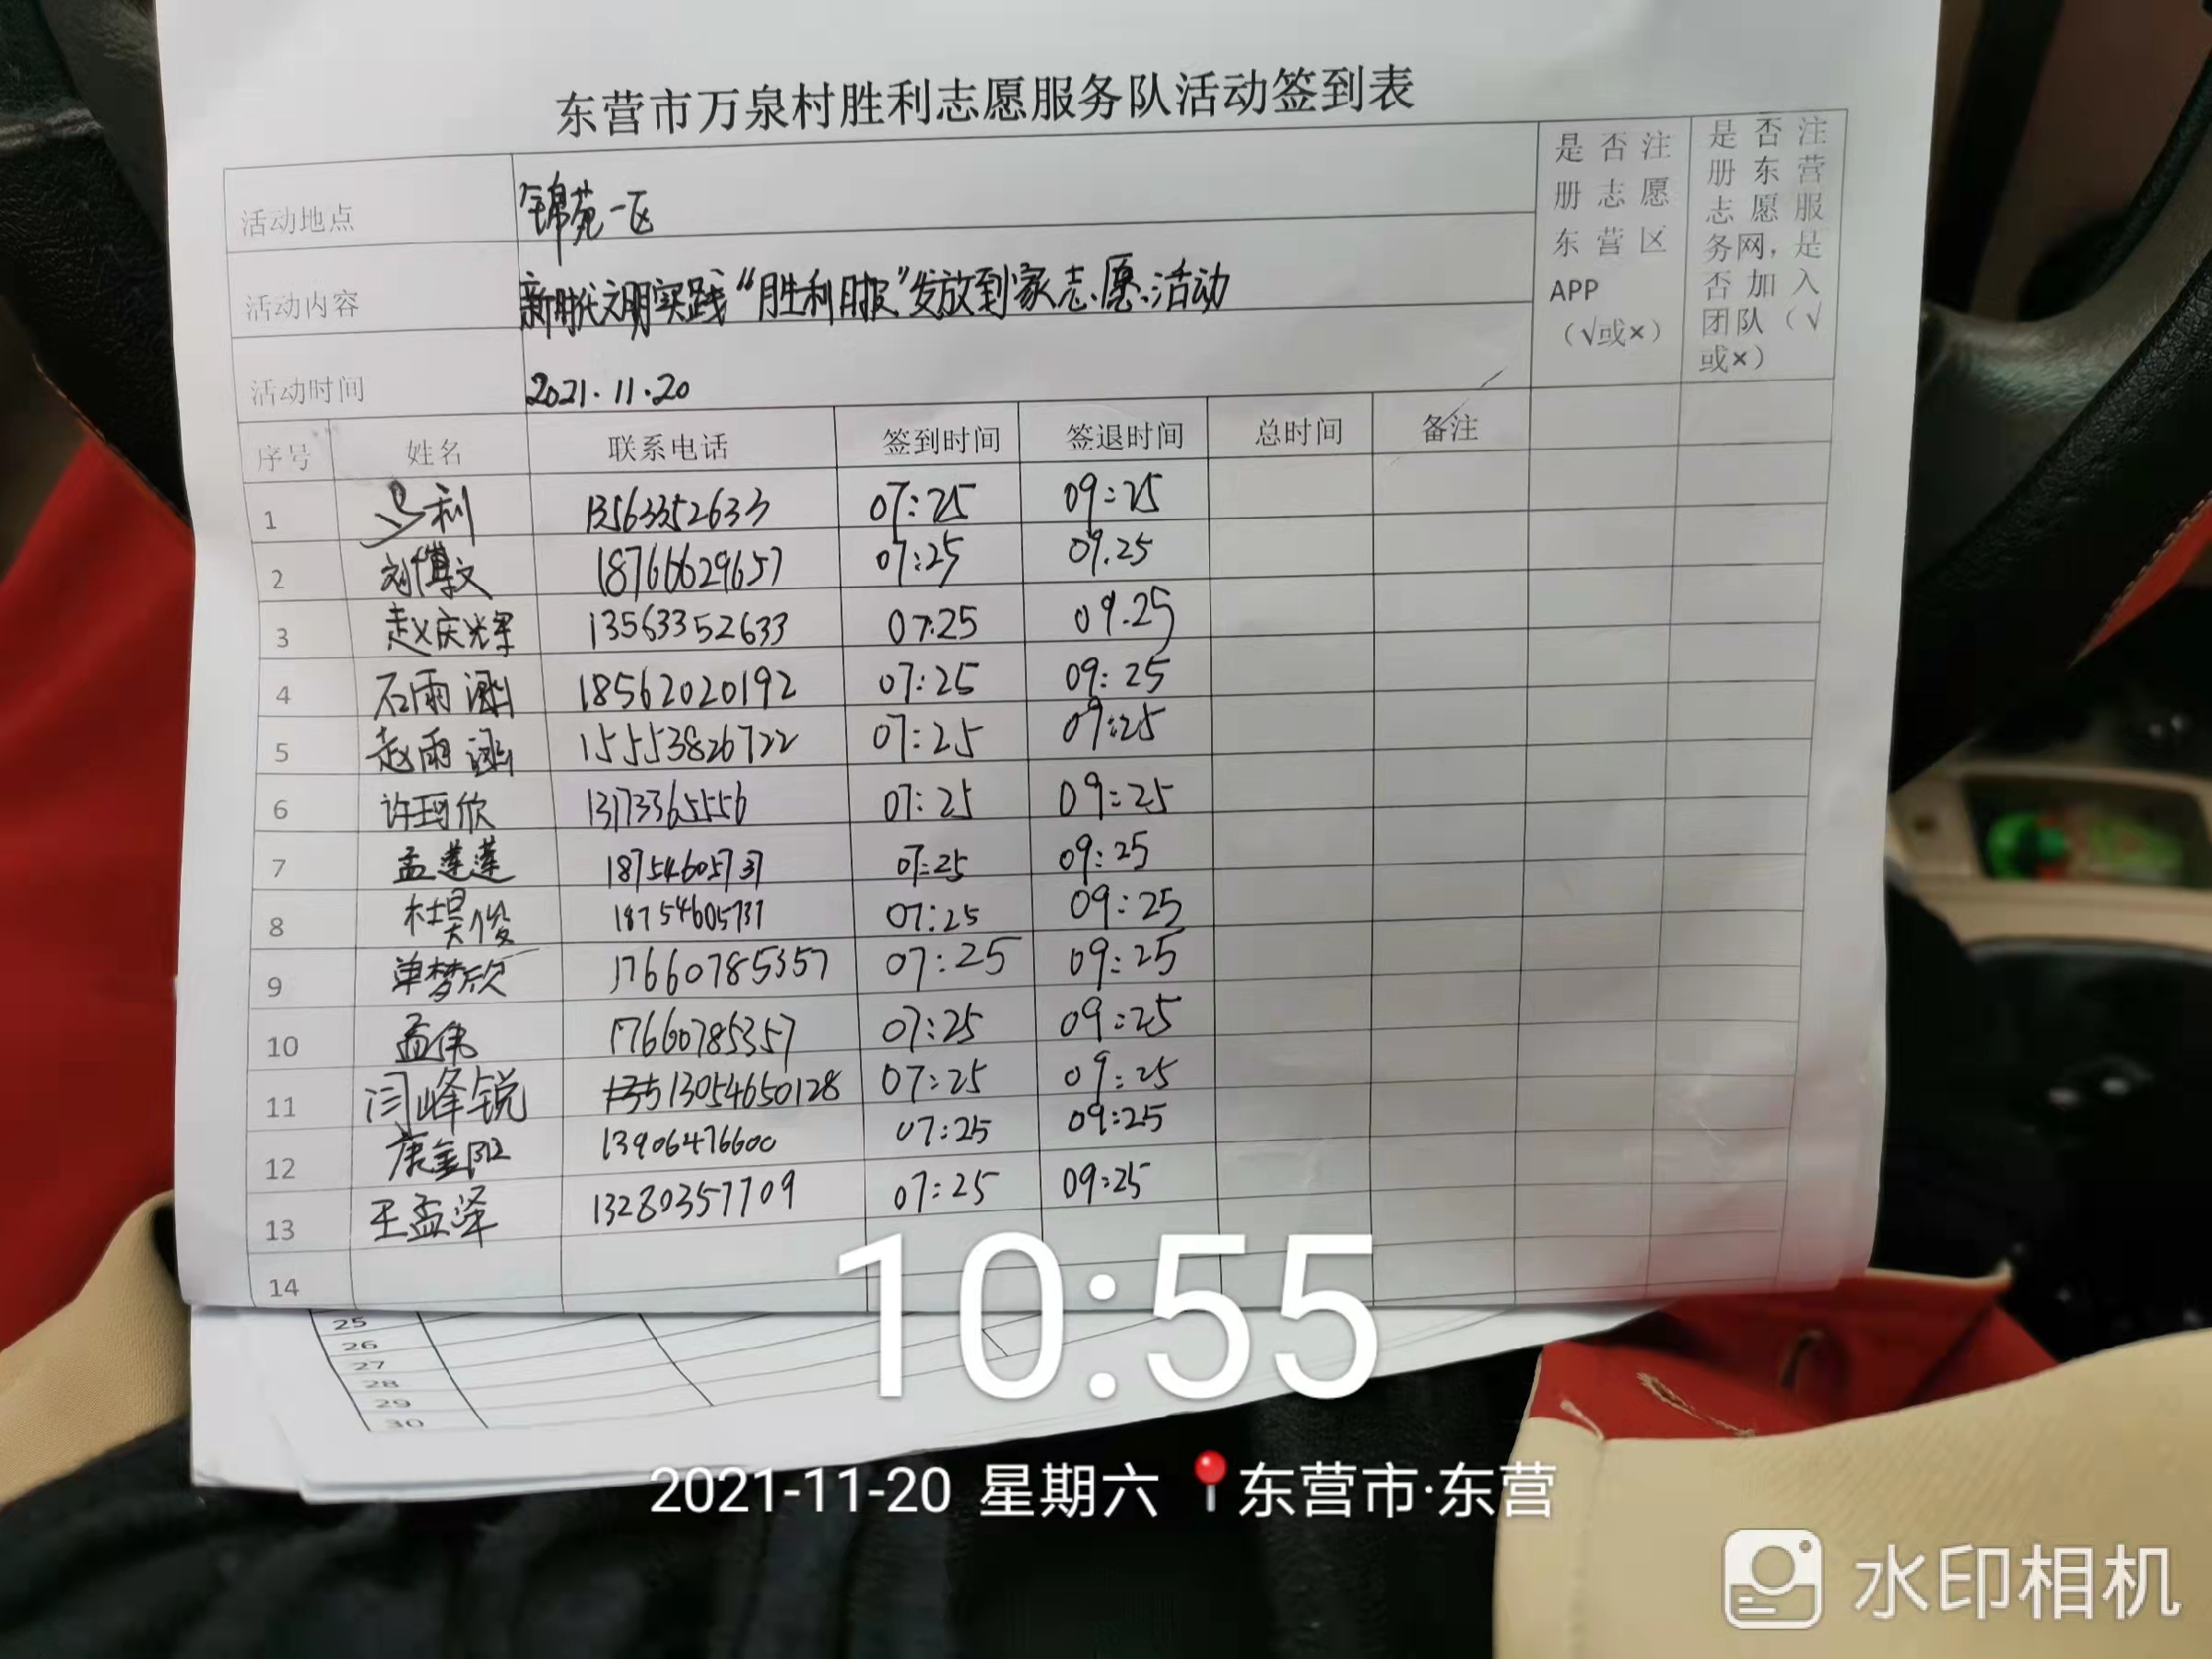 东营市万泉村胜利志愿服务队活动签到表
活动地点 锦苑一区
活动内容 新时代文明实践“胜利日报”发放到家志愿活动
活动时间 2021.11.20
是否注
册志愿
东营区
APP
（√或×）
是否注
册东营
志愿服
务网，是
否加入
团队（√
或×）
序号 姓名 联系电话 签到时间 签退时间 总时间 备注
1 利 13563352633 07:25 09:25
2 刘博文 18766629657 07:25 09.25
3 赵庆光军 13563352633 07.25 09.25
4 石雨涵 18562020192 07:25 09:25
5 赵雨涵 15553826722 07:25 09:25
6 许珂欣 13173365556 07:25 09:25
7 孟莲莲 18754605737 07:25 09:25
8 杜昊俊 18754605737 07:25 09:25
9 单梦欣 17660785357 07:25 09:25
10 孟伟 17660785357 07:25 09:25
11 闫峰锐 13054650128 07:25 09:25
12 唐金阳 13906476600 07:25 09:25
13 王孟泽 13280357709 07:25 09:25
14
25
26
27
28
29
30
10:55
2021-11-20 星期六 东营市·东营
水印相机